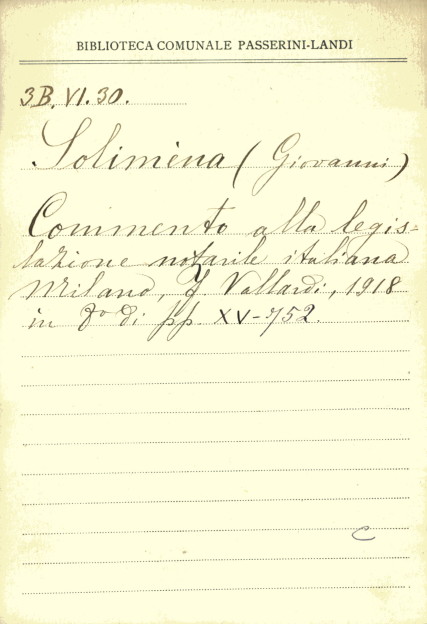 BIBLIOTECA COMUNALE PASSERINI-LANDI
3B. VI. 30.
Solimèna (Giovanni)
Commento alla legis-
lazione notarile italiana
Milano, F. Vallardi, 1918
in 8º di pp. XV-752.
C